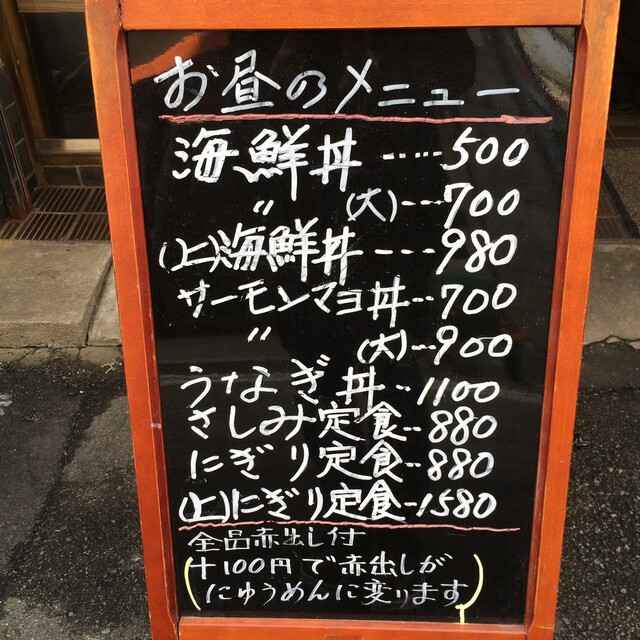 お昼のメニュー
海鮮丼-----500
〃 (大)----700
(上)海鮮丼----980
サーモンマヨ丼--700
〃 (大)---900
うなぎ丼--1100
さしみ定食--880
にぎり定食--880
(上)にぎり定食--1580
全品赤出し付
(+100円で赤出しが
にゅうめんに変ります)